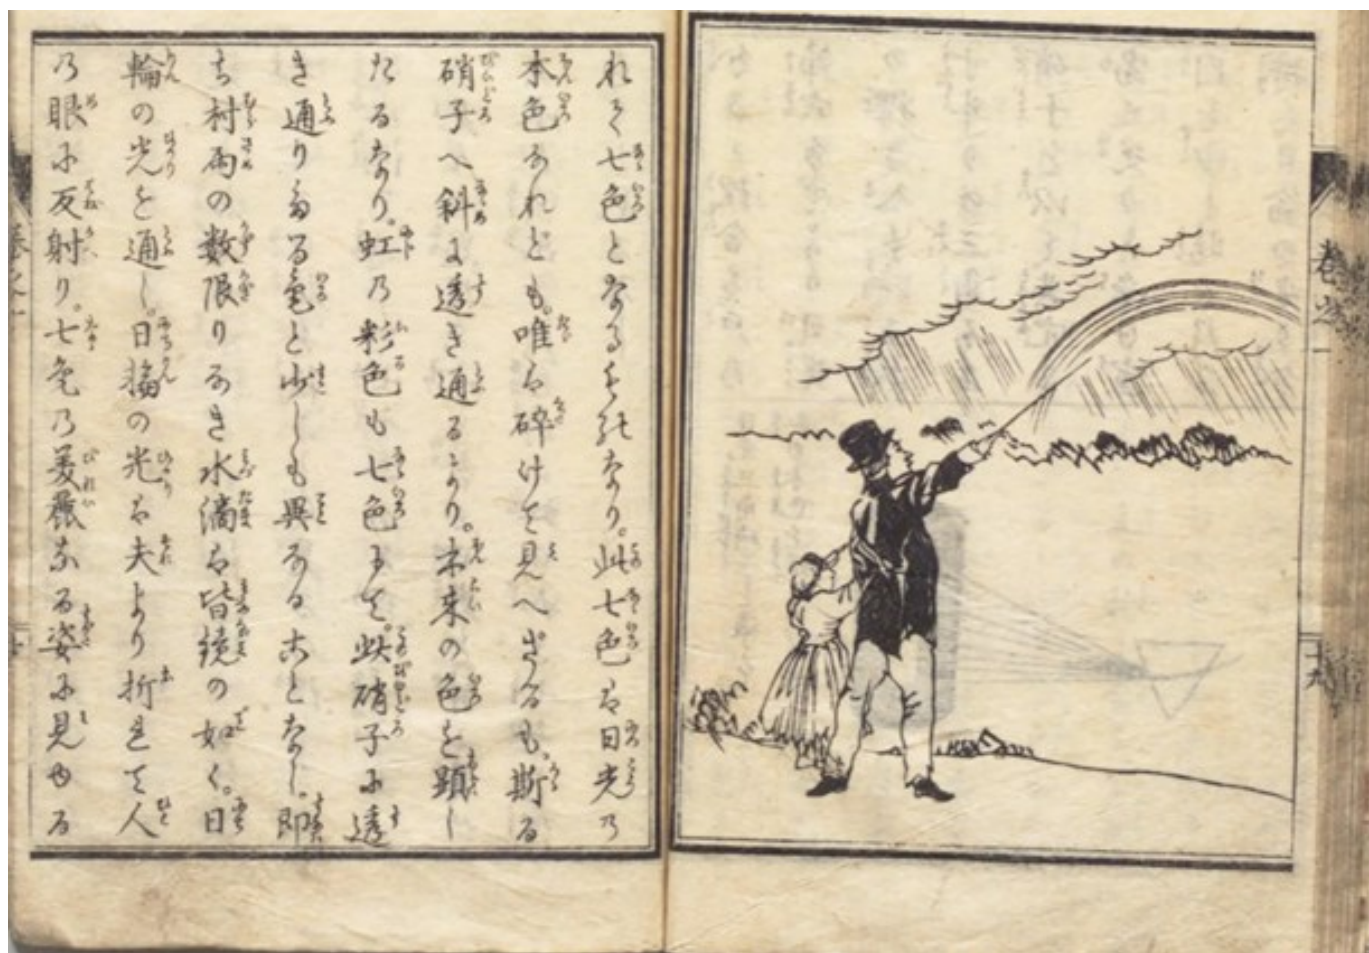 巻之一
十九
れて七色となるものなり。此七色は日光の
本色なれども。唯は砕けて見へざるも。斯る
硝子へ斜に透き通るより。本来の色を顕し
たるなり。虹の彩色も七色にて。此硝子に透
き通りたる色と少しも異なることなし。即
ち村雨の数限りなき水滴は皆鏡の如く。日
輪の光を通し。日輪の光は夫より折れて人
の眼に反射り。七色の美麗なる姿に見ゆる